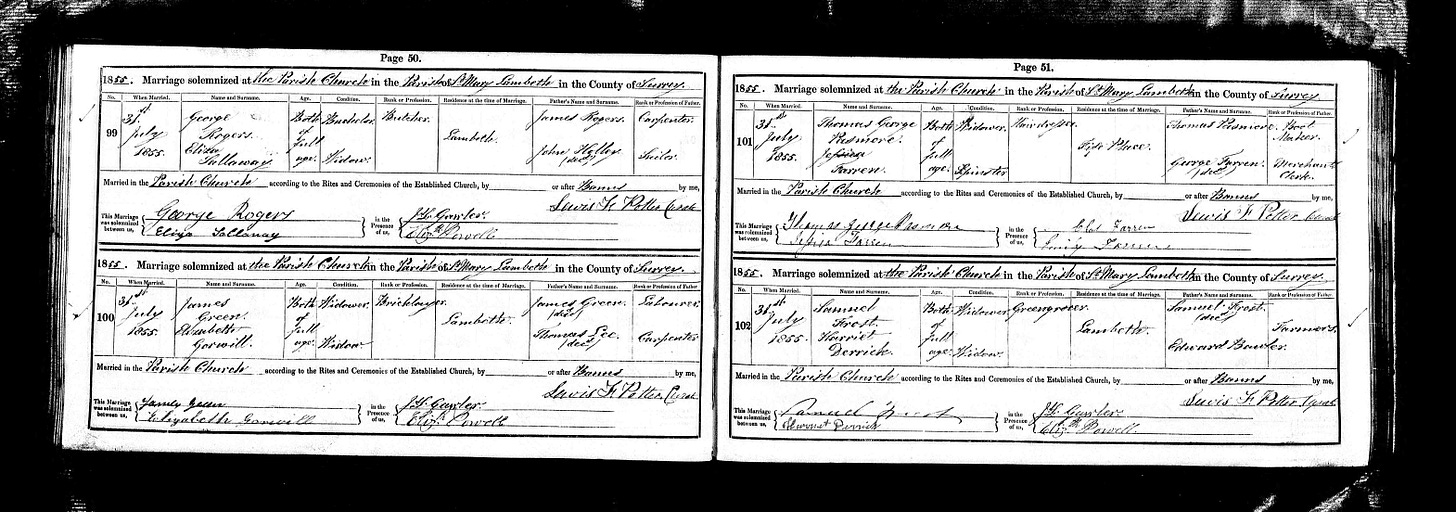 Page 50.
1855. Marriage solemnized at the Parish Church in the Parish of St Mary Lambeth in the County of Surrey.
No. When Married. Name and Surname. Age. Condition. Rank or Profession. Residence at the time of Marriage. Father's Name and Surname. Rank or Profession of Father.
99 31st July 1855. George Rogers. Both of full age. Bachelor Butcher Lambeth. James Rogers. Carpenter.
Eliza Widow. John (decd)
Married in the Parish Church according to the Rites and Ceremonies of the Established Church, by or after Banns by me,
Lewis F. Potter Curate
This Marriage was solemnized between us, George Rogers in the Presence of us, Gawler.
Eliza Eliz. Powell
1855. Marriage solemnized at the Parish Church in the Parish of St Mary Lambeth in the County of Surrey.
No. When Married. Name and Surname. Age. Condition. Rank or Profession. Residence at the time of Marriage. Father's Name and Surname. Rank or Profession of Father.
100 31st July 1855. James Green. Both of full age. Widower. Bricklayer. Lambeth. James Green. (decd) Labourer.
Elizabeth Gorwill. Widow Thomas (decd) Carpenter
Married in the Parish Church according to the Rites and Ceremonies of the Established Church, by or after Banns by me,
Lewis F. Potter Curate
This Marriage was solemnized between us, James Green in the Presence of us, Gawler.
Elizabeth Gorwill Eliz. Powell
Page 51.
1855. Marriage solemnized at the Parish Church in the Parish of St Mary Lambeth in the County of Surrey
No. When Married. Name and Surname. Age. Condition. Rank or Profession. Residence at the time of Marriage. Father's Name and Surname. Rank or Profession of Father.
101 31st July 1855. Thomas George Pasmore. Both of full age. Widower. Hairdresser. Place. Thomas Pasmore. Boot Maker.
Farren. Spinster George Farren. (decd) Merchants Clerk.
Married in the Parish Church according to the Rites and Ceremonies of the Established Church, by or after Banns by me,
Lewis F. Potter Curate
This Marriage was solemnized between us, Thomas George Pasmore in the Presence of us, Farren
Farren
1855. Marriage solemnized at the Parish Church in the Parish of St Mary Lambeth in the County of Surrey.
No. When Married. Name and Surname. Age. Condition. Rank or Profession. Residence at the time of Marriage. Father's Name and Surname. Rank or Profession of Father.
102 31st July 1855. Samuel Frost. Both of full age. Widower. Greengrocer. Lambeth. Samuel Frost. (decd) Farmers.
Harriet Derrick. Widow. Edward
Married in the Parish Church according to the Rites and Ceremonies of the Established Church, by or after Banns by me,
Lewis F. Potter Curate
This Marriage was solemnized between us, Samuel Frost in the Presence of us, Gawler.
Harriet Derrick Eliz. Powell.